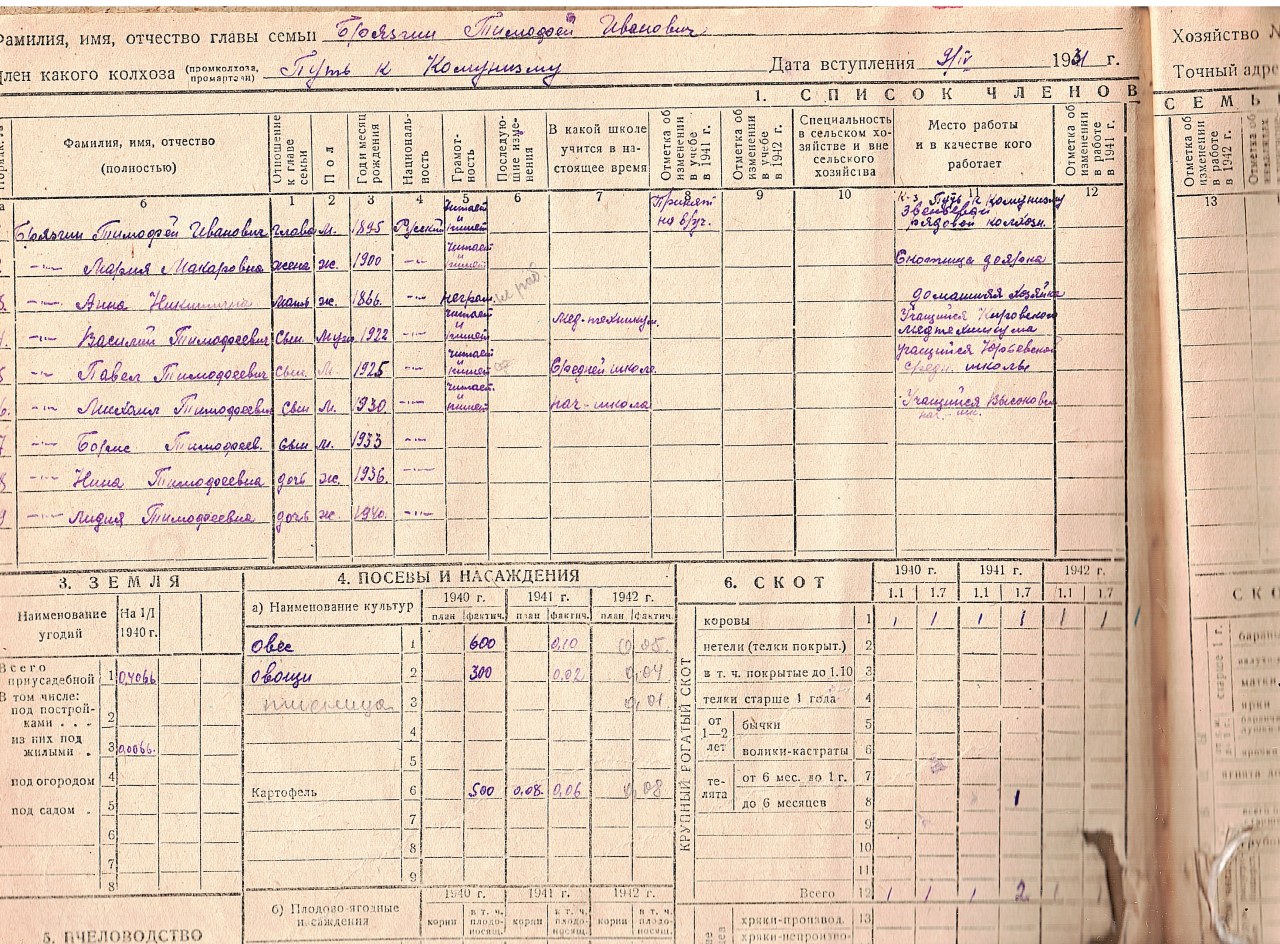 Фамилия, имя, отчество главы семьи Брязгин Тимофей Иванович
Член какого колхоза (промколхоза, промартели) Путь к Комунизму Дата вступления 9/IV 1931 г.
Хозяйство №
Точный адре
1. СПИСОК ЧЛЕНОВ СЕМЬ
Фамилия, имя, отчество (полностью)
Отношение к главе семьи
Пол
Год и месяц рождения
Националь-ность
Грамот-ность
Последую-щие изме-нения
В какой школе учится в на-стоящее время
Отметка об изменении в учебе в 1941 г.
Отметка об изменении в учебе в 1942 г.
Специальность в сельском хо-зяйстве и вне сельского хозяйства
Место работы и в качестве кого работает
Отметка об изменении в работе в 1941 г.
Отметка об изменении в работе в 1942 г.
а б 1 2 3 4 5 6 7 8 9 10 11 12 13
Брязгин Тимофей Иванович глава м. 1895 Русский читает и пишет Принят на в/уч. к-з Путь к комунизму звеньевой рядовой колхозн.
2. -"- Мария Макаровна жена ж. 1900 -"- читает пишет Скотница доярка
3. -"- Анна Никитична мать ж. 1866. -"- неграм. домашняя хозяйка
4. -"- Василий Тимофеевич сын муж. 1922 -"- читает и пишет Мед-техникум. Учащийся Кировского медтехникума
5 -"- Павел Тимофеевич сын м. 1925 -"- читает и пишет Средней школе учащийся Юрьевской средн. школы
6. -"- Михаил Тимофеевич сын м. 1930 -"- читает. пишет нач-школа Учащийся Высоков нач. шк.
7 -"- Борис Тимофеев. сын м. 1933 -"-
8 -"- Нина Тимофеевна дочь ж. 1936. -"-
9 -"- Лидия Тимофеевна дочь ж. 1940. -"-
3. ЗЕМЛЯ
Наименование угодий На 1/I 1940 г.
Всего приусадебной 1
В том числе:
под построй-ками . . . 2
из них под жилыми . 3
под огородом 4
под садом . 5
6
7
8
5. ПЧЕЛОВОДСТВО
4. ПОСЕВЫ И НАСАЖДЕНИЯ
а) Наименование культур 1940 г. 1941 г. 1942 г.
план фактич. план фактич. план фактич.
овес 1 600 0,10 0,05
овощи 2 300 0.02 0,04
пшеница 3 0,01
4
5
Картофель 6 500 0,08 0,06 0,08
7
8
9
б) Плодово-ягодные насаждения 1940 г. 1941 г. 1942 г.
корни в т. ч. плодо-носящ. корни в т. ч. плодо-носящ. корни в т. ч. плодо-носящ.
6. СКОТ
1940 г. 1941 г. 1942 г.
1.1 1.7 1.1 1.7 1.1 1.7
КРУПНЫЙ РОГАТЫЙ СКОТ
коровы 1 1 1 1 1 1 1 1
нетели (телки покрыт.) 2
в т. ч. покрытые до 1.10 3
телки старше 1 года 4
от 1—2 лет бычки 5
волики-кастраты 6
те-лята от 6 мес. до 1 г. 7
до 6 месяцев 8 1
9
10
11
Всего 12 1 1 1 2 1 1
хряки-производ. 13
хряки-непроизво-
СКО
старше 1 г.
баран
валухи
матки
ярки